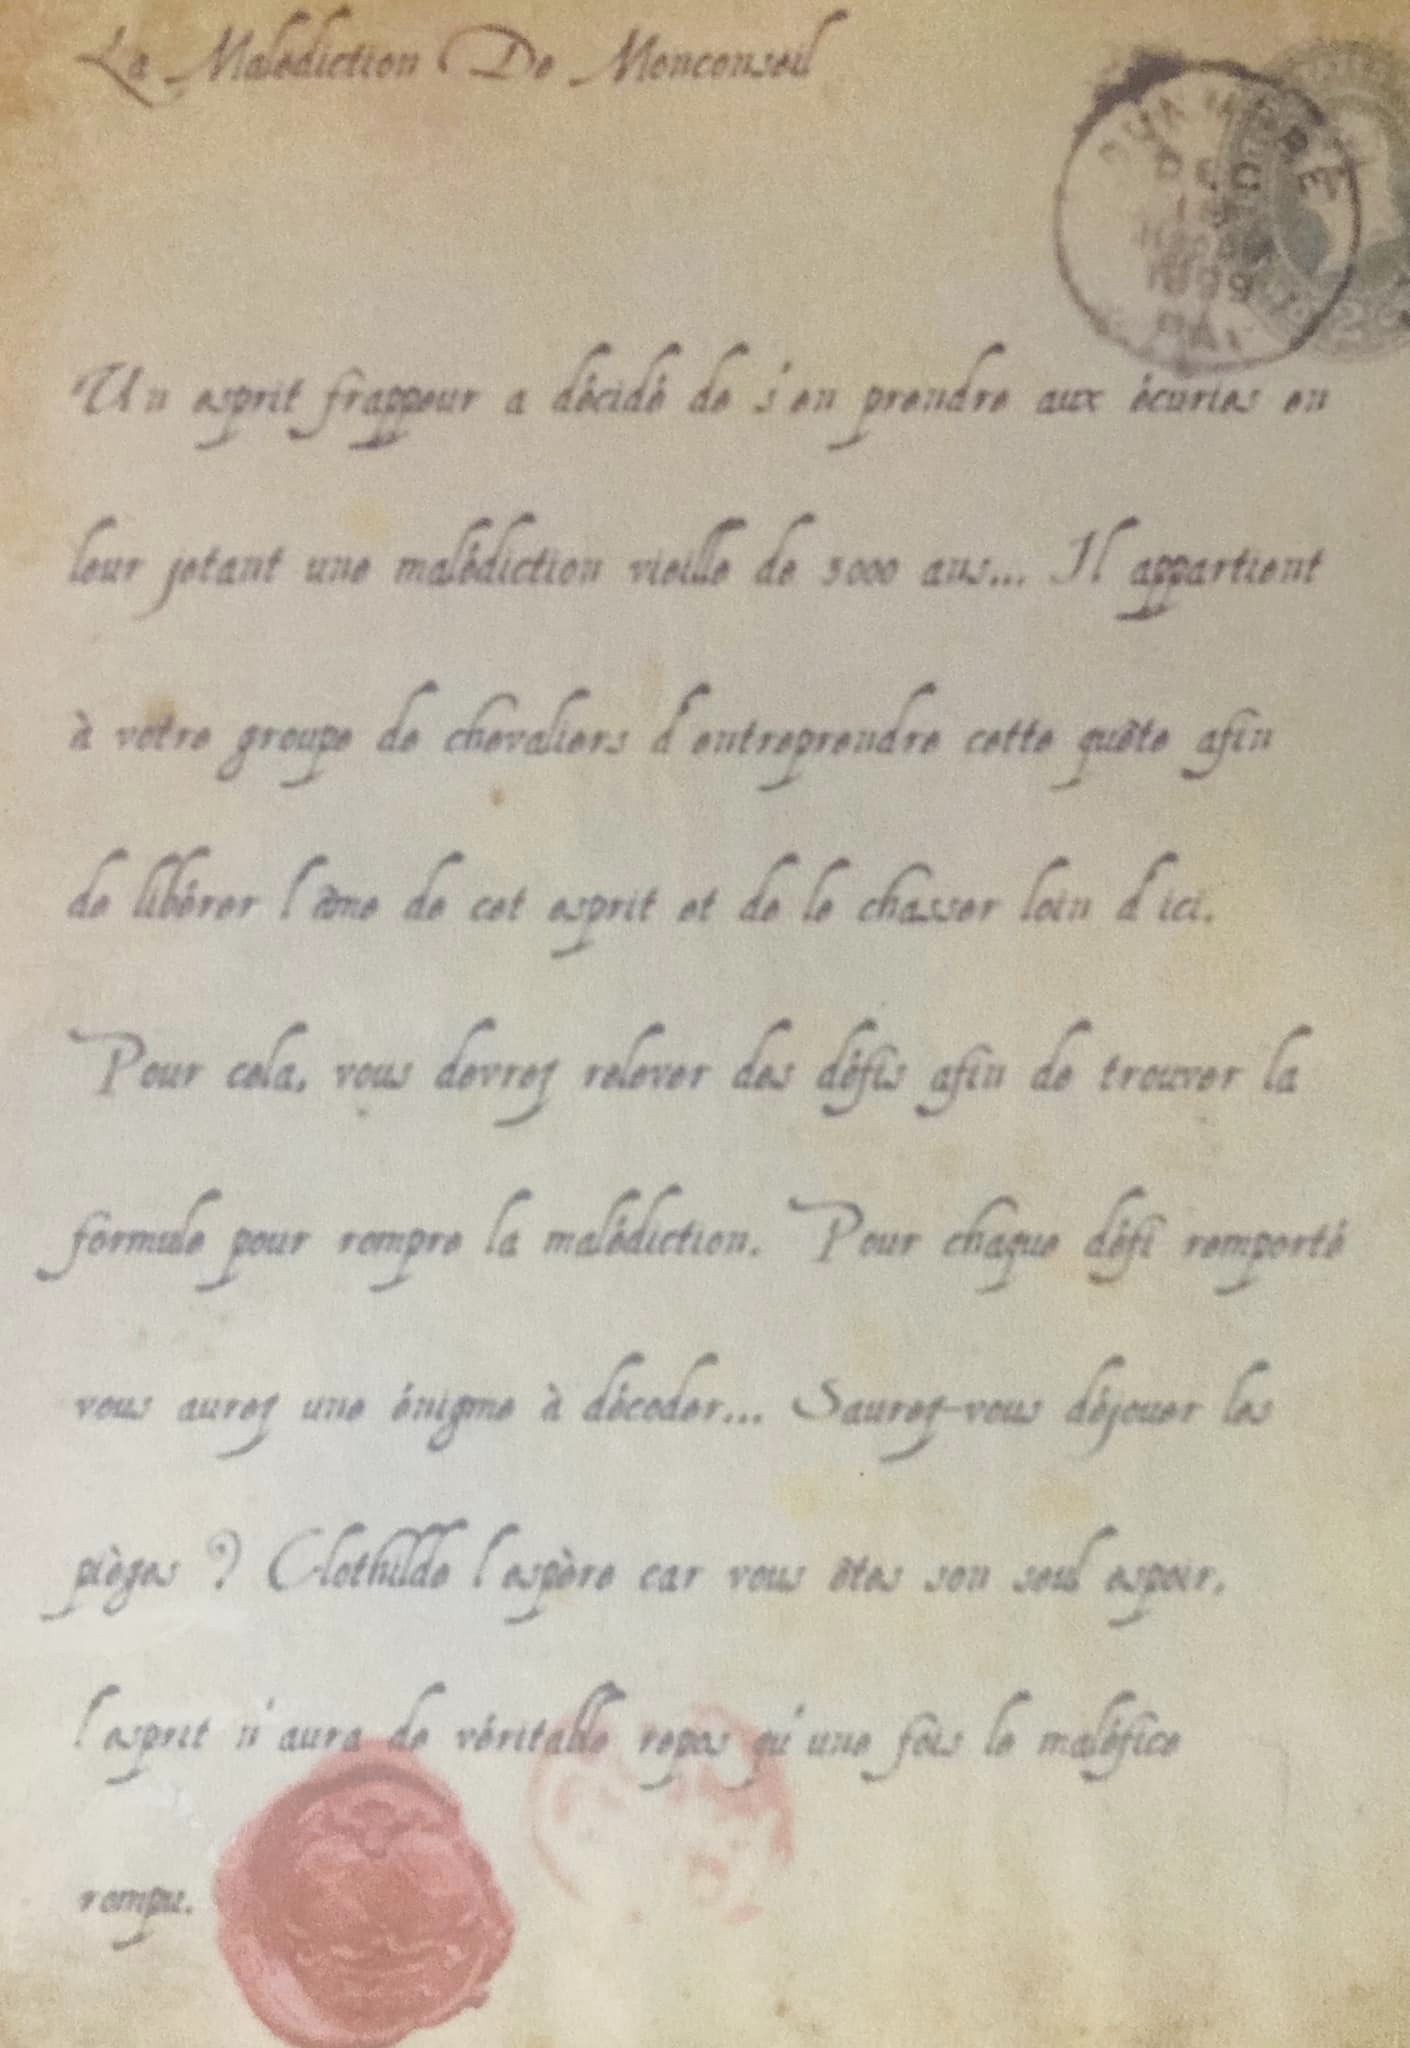 La Malédiction De Monconseil
DEC
Un esprit frappeur a décidé de s'en prendre aux écuries en
leur jetant une malédiction vieille de 5000 ans... Il appartient
à votre groupe de chevaliers d'entreprendre cette quête afin
de libérer l'âme de cet esprit et de le chasser loin d'ici.
Pour cela, vous devrez relever des défis afin de trouver la
formule pour rompre la malédiction. Pour chaque défi remporté
vous aurez une énigme à décoder... Saurez-vous déjouer les
pièges ? Clothilde l'espère car vous êtes son seul espoir.
l'esprit n'aura de véritable repos qu'une fois le maléfice
rompu.